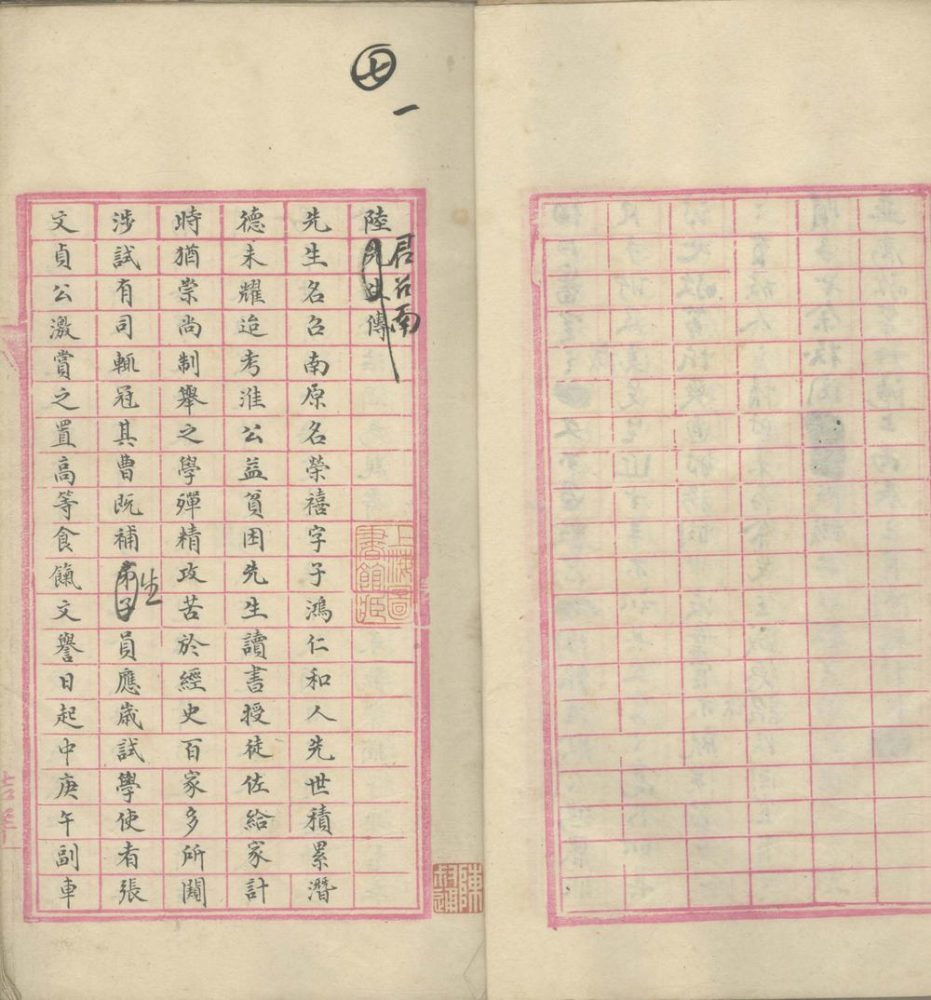 七
一
陸先生傳
君召南
先生名召南原名榮禧字子鴻仁和人先世積累潛
德未耀迨考淮公益貧困先生讀書授徒佐給家計
時猶崇尚制舉之學殫精攻苦於經史百家多所闚
涉試有司輒冠其曹既補弟子員應歲試學使者張
生
文貞公激賞之置高等食餼文譽日起中庚午副車
上海圖
書館藏
陳